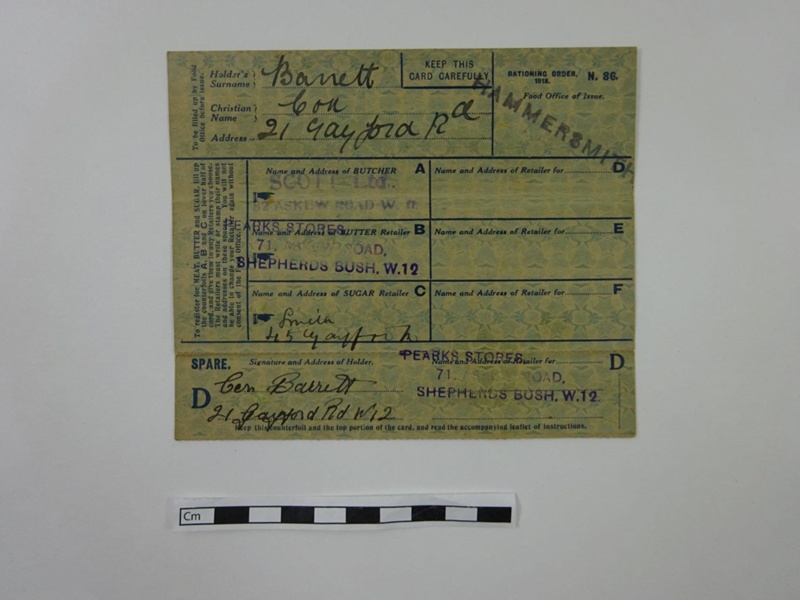 To be filled up by Food
Office before issue.
Holder's Surname Barrett
Christian Name
Address 21 Gayford Rd
KEEP THIS
CARD CAREFULLY
RATIONING ORDER, 1918.
N. 86.
Food Office of Issue.
HAMMERSMITH
To register for MEAT, BUTTER and SUGAR, fill up
the counterfoils A, B and C on lower half of
card, and give them to any Retailers you choose.
The Retailers must write or stamp their names
and addresses on these spaces. You will not
be able to change your Retailer again without
consent of the Food Office.
Name and Address of BUTCHER A
SCOTT Ltd.
52 ASKEW ROAD W.
Name and Address of BUTTER Retailer B
PEARKS STORES
71, ROAD,
SHEPHERDS BUSH, W.12
Name and Address of SUGAR Retailer C
45 Gayford
Name and Address of Retailer for D
Name and Address of Retailer for E
Name and Address of Retailer for F
SPARE.
Signature and Address of Holder.
D
Barrett
21 Gayford Rd W12
Name and Address of Retailer for D
PEARKS STORES
71, ROAD,
SHEPHERDS BUSH, W.12.
Keep this counterfoil and the top portion of the card, and read the accompanying leaflet of instructions.
Cm